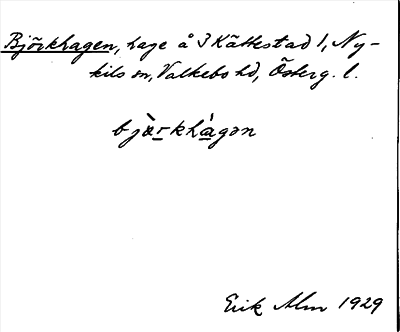 Björkhagen, hage å 3 Kättestad 1, Ny-
kils sn, Valkebo hd, Österg. l.
bjæ̀rkhàgən
Erik Alm 1929